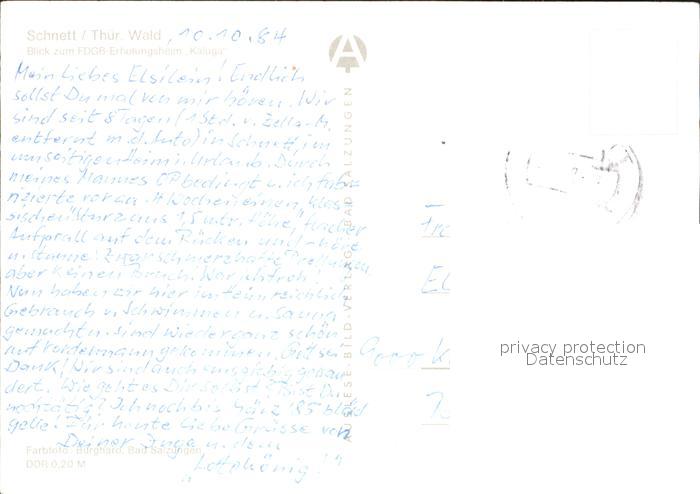 Schnett / Thür. Wald , 10.10.84
Blick zum FDGB-Erholungsheim „Kaluga"
Mein liebes Elsilein! Endlich
sollst Du mal von mir hören. Wir
sind seit 8 Tagen (1 Std. v. Zella-M.
entfernt m. d. Auto) in Schnett, im
umseitigen Heim i. Urlaub. Durch
meines Mannes bedingt u. ich
vor ca. 4 Wochen einen
Sturz aus 1,5 mtr. Höhe,
Aufprall auf dem Rücken und – höre
u. staune! Zwar schmerzhafte Prellungen
aber keinen Bruch! War ich froh!
Nun haben wir hier im Heim reichlich
Gebrauch v. Schwimmen u. Sauna
gemacht u. sind wieder ganz schön
auf Vordermann gekommen. Gott sei
Dank! Wir sind auch
dert. Wie geht es Dir selbst? Bist Du
noch tätig? Ich noch bis März '85
Für heute liebe Grüsse von
Deiner Inga u. dem
"Lottokönig!"
Farbfoto: Burghard, Bad Salzungen
DDR 0,20 M
A
AUSLESE-BILD-VERLAG, BAD SALZUNGEN
El
K
privacy protection
Datenschutz